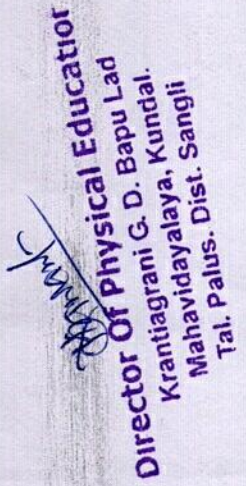 Director Of Physical Education
Krantiagrani G. D. Bapu Lad
Mahavidayalaya, Kundal.
Tal. Palus. Dist. Sangli